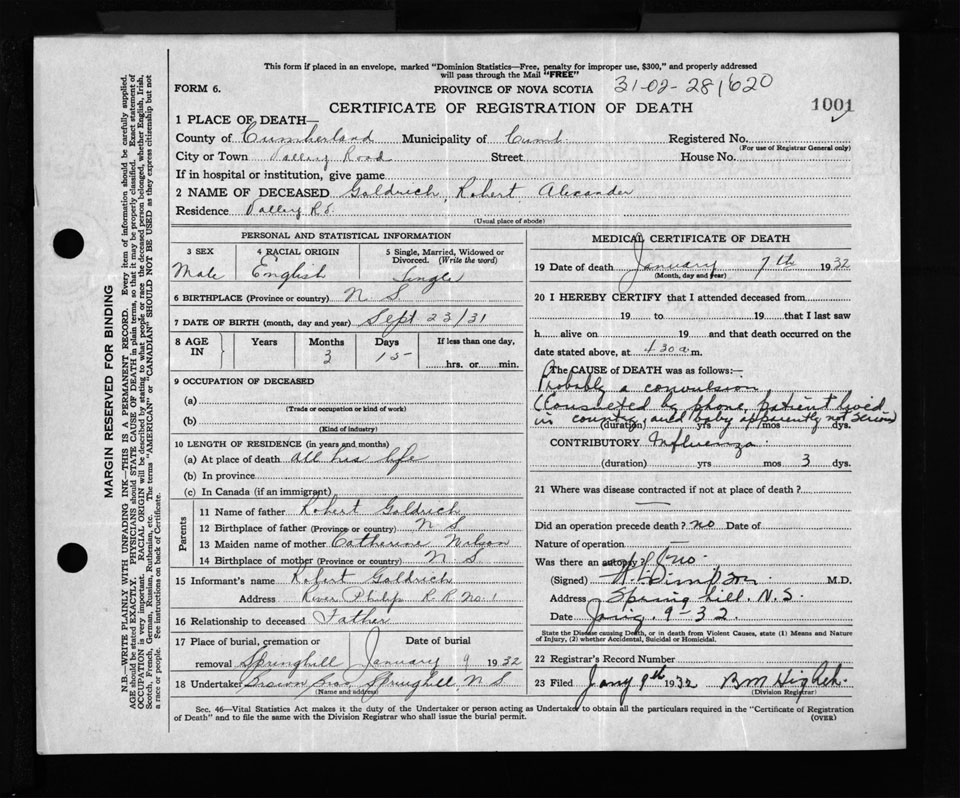 This form if placed in an envelope, marked "Dominion Statistics—Free, penalty for improper use, $300," and properly addressed
will pass through the Mail "FREE"
FORM 6. PROVINCE OF NOVA SCOTIA 31-02-281620
CERTIFICATE OF REGISTRATION OF DEATH 1001
1 PLACE OF DEATH—
County of Cumberland Municipality of Cumb. Registered No.
(For use of Registrar General only)
City or Town Valley Road Street House No.
If in hospital or institution, give name
2 NAME OF DECEASED Goldrich, Robert Alexander
Residence Valley Rd.
(Usual place of abode)
PERSONAL AND STATISTICAL INFORMATION
3 SEX 4 RACIAL ORIGIN 5 Single, Married, Widowed or
Divorced. (Write the word)
Male English Single
6 BIRTHPLACE (Province or country) N S
7 DATE OF BIRTH (month, day and year) Sept 23/31
8 AGE IN Years Months Days If less than one day,
3 15 hrs. or min.
9 OCCUPATION OF DECEASED
(a)
(Trade or occupation or kind of work)
(b)
(Kind of industry)
10 LENGTH OF RESIDENCE (in years and months)
(a) At place of death all his life
(b) In province
(c) In Canada (if an immigrant)
Parents
11 Name of father Robert Goldrich
12 Birthplace of father (Province or country) N S
13 Maiden name of mother Catherine Wilson
14 Birthplace of mother (Province or country) N S
15 Informant's name Robert Goldrich
Address River Philip R.R. No. 1
16 Relationship to deceased Father
17 Place of burial, cremation or Date of burial
removal Springhill January 9 1932
18 Undertaker Brown Bros Springhill, N S
(Name and address)
MEDICAL CERTIFICATE OF DEATH
19 Date of death January 7th 1932
(Month, day and year)
20 I HEREBY CERTIFY that I attended deceased from
19 to 19 that I last saw
h alive on 19 and that death occurred on the
date stated above, at 4 30 a m.
The CAUSE of DEATH was as follows:—
Probably a convulsion
(Consulted by phone, patient lived
in country and baby apparently not serious)
(duration) yrs mos dys.
CONTRIBUTORY Influenza
(duration) yrs mos 3 dys.
21 Where was disease contracted if not at place of death?
Did an operation precede death? no Date of
Nature of operation
Was there an autopsy? no
(Signed) M.D.
Address Springhill, N.S.
Date Jany. 9-32
State the Disease causing Death, or in death from Violent Causes, state (1) Means and Nature
of Injury, (2) whether Accidental, Suicidal or Homicidal.
22 Registrar's Record Number
23 Filed Jany 9th 1932
(Division Registrar)
Sec. 46—Vital Statistics Act makes it the duty of the Undertaker or person acting as Undertaker to obtain all the particulars required in the "Certificate of Registration
of Death" and to file the same with the Division Registrar who shall issue the burial permit.
(OVER)
MARGIN RESERVED FOR BINDING
N.B.—WRITE PLAINLY WITH UNFADING INK—THIS IS A PERMANENT RECORD. Every item of information should be carefully supplied.
AGE should be stated EXACTLY. PHYSICIANS should STATE CAUSE OF DEATH in plain terms, so that it may be properly classified. Exact statement of
OCCUPATION is very important. RACIAL ORIGIN will be described by stating to what people or race the deceased person belonged, whether English, Irish,
Scotch, French, German, Russian, Ruthenian, etc. The terms "AMERICAN" or "CANADIAN" SHOULD NOT BE USED as they express citizenship but not
a race or people. See instructions on back of Certificate.